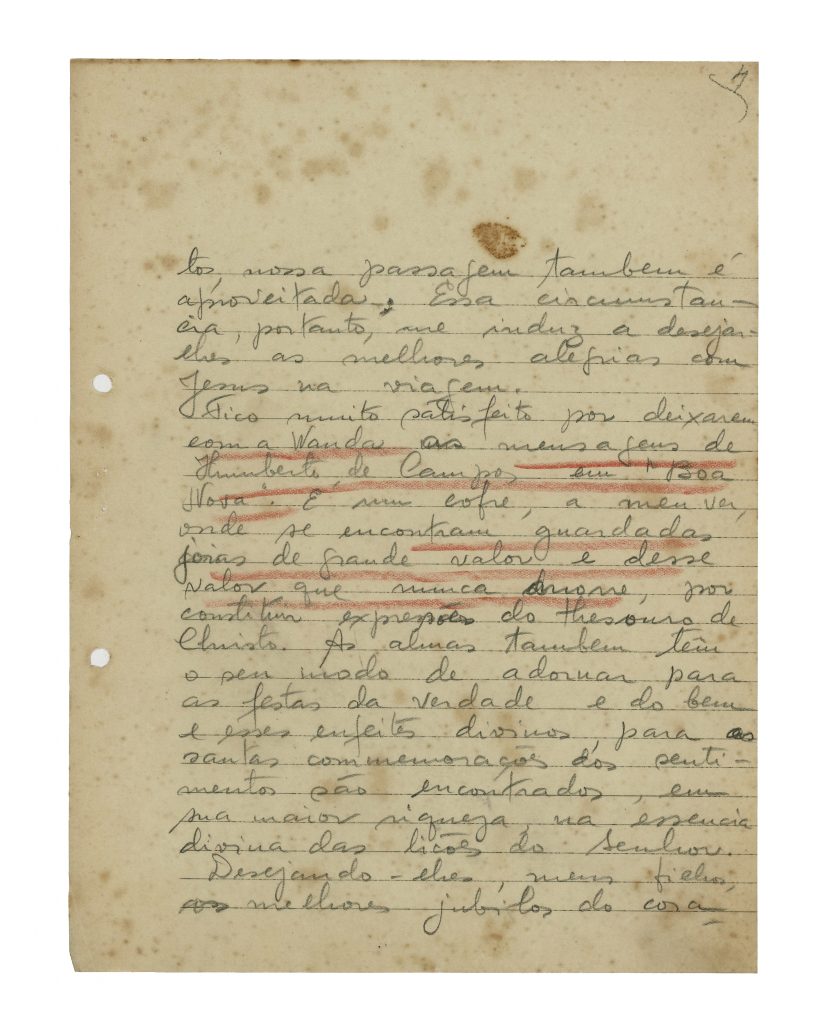 4
tos, nossa passagem tambem é
aproveitada. Essa circumstan-
cia, portanto, me induz a desejar-
lhes as melhores alegrias com
Jesus na viagem.
Fico muito satisfeito por deixarem
com a Wanda as mensagens de
Humberto de Campos em "Boa
Nova". É um cofre, a meu ver,
onde se encontram guardadas
joias de grande valor e desse
valor que nunca morre, por
constituir expressões do thesouro de
Christo. As almas tambem têm
o seu modo de adornar para
as festas da verdade e do bem
e esses enfeites divinos, para as
santas commemorações dos senti-
mentos são encontrados, em
sua maior riqueza, na essencia
divina das lições do Senhor.
Desejando-lhes, meus filhos,
os melhores jubilos do cora-